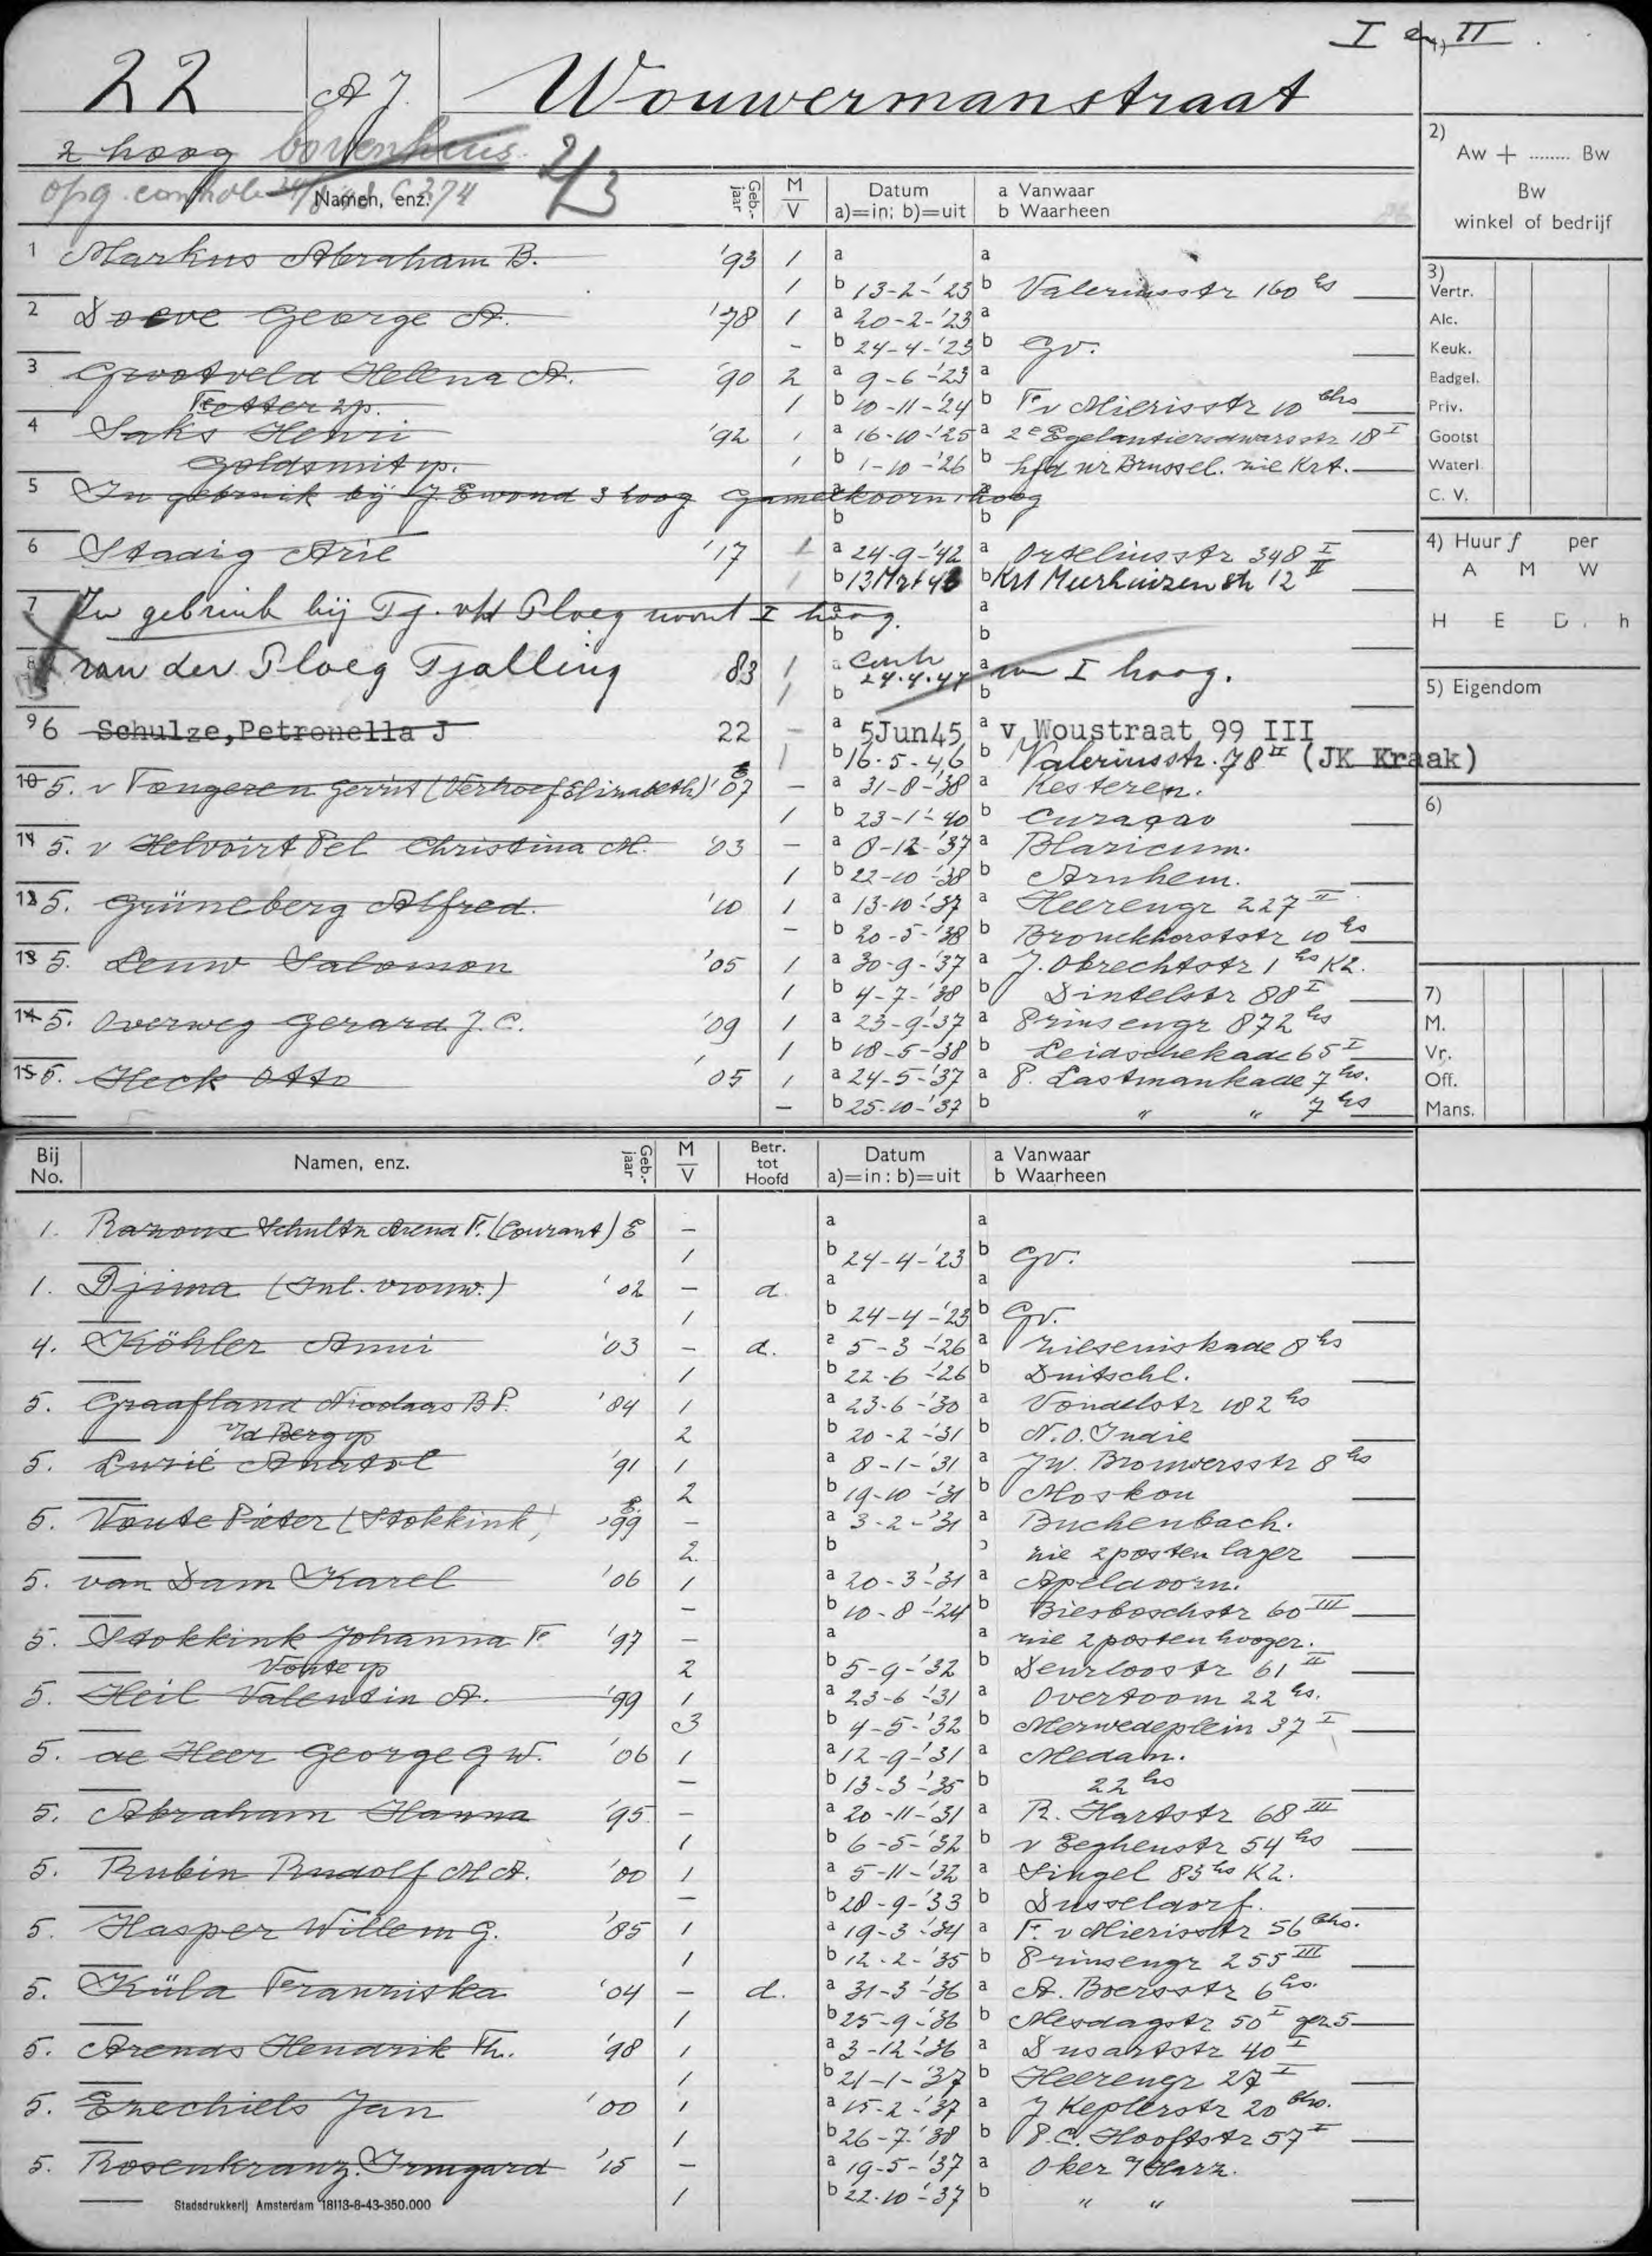 I en II .
22 A J. Wouwermanstraat
2 hoog bovenhuis 2/3
opg. controle C 374
Namen, enz. Geb.-jaar M/V Datum a)=in: b)=uit a Vanwaar b Waarheen
1 Markus Abraham B. '93 1 a a
1 b 13-2-'23 b Valeriusstr 160 hs
2 Doeve George A. '78 1 a 20-2-'23 a
- b 24-4-'23 b Gv.
3 Grootveld Helena A. '90 2 a 9-6-'23 a
Fetter 2p. 1 b 10-11-'24 b F v Mierisstr 10 bhs
4 Saks Henri '92 1 a 16-10-'25 a 2e Egelantiersdwarsstr 18 I
Goldsmit yp. 1 b 1-10-'26 b hfd nr Brussel. zie Krt.
5 In gebruik bij J Ewond 3 hoog Gamelkoorn 1 hoog a a
b b
6 Stadig Arie '17 1 a 24-9-'42 a Orteliusstr 348 I
1 b 13 Mrt 43 b Krt Meerhuizenstr 12 II
7 In gebruik bij Tj. v/d Ploeg woont I hoog. a a
b b
8 van der Ploeg Tjalling 83 1 a Contr 24.4.47 a v I hoog.
1 b b
9 6 Schulze, Petronella J 22 - a 5 Jun 45 a v Woustraat 99 III
1 b 16-5-46 b Valeriusstr. 78 II (JK Kraak)
10 5. v Tongeren Gerrit (Verhoef Elizabeth) '07 - a 31-8-'38 a Kesteren.
1 b 23-1-'40 b Curaçao
11 5. v Helvoirt Pel Christina M. '03 - a 8-12-'37 a Blaricum.
1 b 22-10-'38 b Arnhem.
12 5. Grüneberg Alfred. '10 1 a 13-10-'37 a Heerengr 227 II
- b 20-5-'38 b Bronckhorststr 10 hs
13 5. Leuw Salomon '05 1 a 30-9-'37 a J. Obrechtstr 1 hs K2.
1 b 4-7-'38 b Dintelstr 88 I
14 5. Overweg Gerard J. C. '09 1 a 23-9-'37 a Prinsengr 872 hs
1 b 18-5-'38 b Leidschekade 65 I
15 5. Heck Otto '05 1 a 24-5-'37 a P. Lastmankade 7 hs.
- b 25-10-'37 b " " 7 hs
1)
2)
Aw + ........ Bw
Bw
winkel of bedrijf
3)
Vertr.
Alc.
Keuk.
Badgel.
Priv.
Gootst
Waterl
C. V.
4) Huur f per
A M W
H E D. h
5) Eigendom
6)
7)
M.
Vr.
Off.
Mans.
Bij No. Namen, enz. Geb.-jaar M/V Betr. tot Hoofd Datum a)=in: b)=uit a Vanwaar b Waarheen
1. Schultz Arend F. (Courant) E - a a
1 b 24-4-'23 b Gv.
1. Djima (Inl. vrouw.) '02 - d. a a
1 b 24-4-'23 b Gv.
4. Köhler Anni '03 - d. a 5-3-'26 a Zieseniskade 8 hs
1 b 22-6-'26 b Duitschl.
5. Graafland Nicolaas B P. '84 1 a 23-6-'30 a Vondelstr 182 hs
v/d Berg yp 2 b 20-2-'31 b N.O. Indie
5. Lurié Anatol '91 1 a 8-1-'31 a JW. Brouwersstr 8 hs
2 b 19-10-'31 b Moskou
5. Voute Pieter (Stokkink) E. '99 - a 3-2-'31 a Buchenbach.
2. b b zie 2 posten lager
5. van Dam Karel '06 1 a 20-3-'31 a Apeldoorn.
- b 10-8-'24 b Biesboschstr 60 III
5. Stokkink Johanna F. '97 - a a zie 2 posten hooger.
Voute yp 2 b 5-9-'32 b Deurloostr 61 II
5. Heil Valentin A. '99 1 a 23-6-'31 a Overtoom 22 hs.
3 b 4-5-'32 b Merwedeplein 37 I
5. de Heer George G W. '06 1 a 12-9-'31 a Medan.
- b 13-3-'35 b 22 hs
5. Abraham Hanna '95 - a 20-11-'31 a R. Hartstr 68 III
1 b 6-5-'32 b v Eeghenstr 54 hs
5. Rubin Rudolf M A. '00 1 a 5-11-'32 a Singel 83 hs K2.
- b 28-9-'33 b Dusseldorf.
5. Hasper Willem G. '85 1 a 19-3-'34 a F. v Mierisstr 56 bhs.
1 b 12-2-'35 b Prinsengr 255 III
5. Küla Franziska '04 - d. a 31-3-'36 a A. Boersstr 6 hs.
1 b 25-9-'36 b Mesdagstr 50 I gez 5
5. Arends Hendrik Th. '98 1 a 3-12-'36 a Dusartstr 40 I
1 b 21-1-'37 b Heerengr 27 I
5. Ezechiels Jan '00 1 a 15-2-'37 a J Keplerstr 20 bhs.
1 b 26-7-'38 b P.C. Hooftstr 57 I
5. Rosenkranz Irmgard '15 - a 19-5-'37 a Oker a/Harz.
1 b 22-10-'37 b " "
Stadsdrukkerij Amsterdam 18113-8-43-350.000